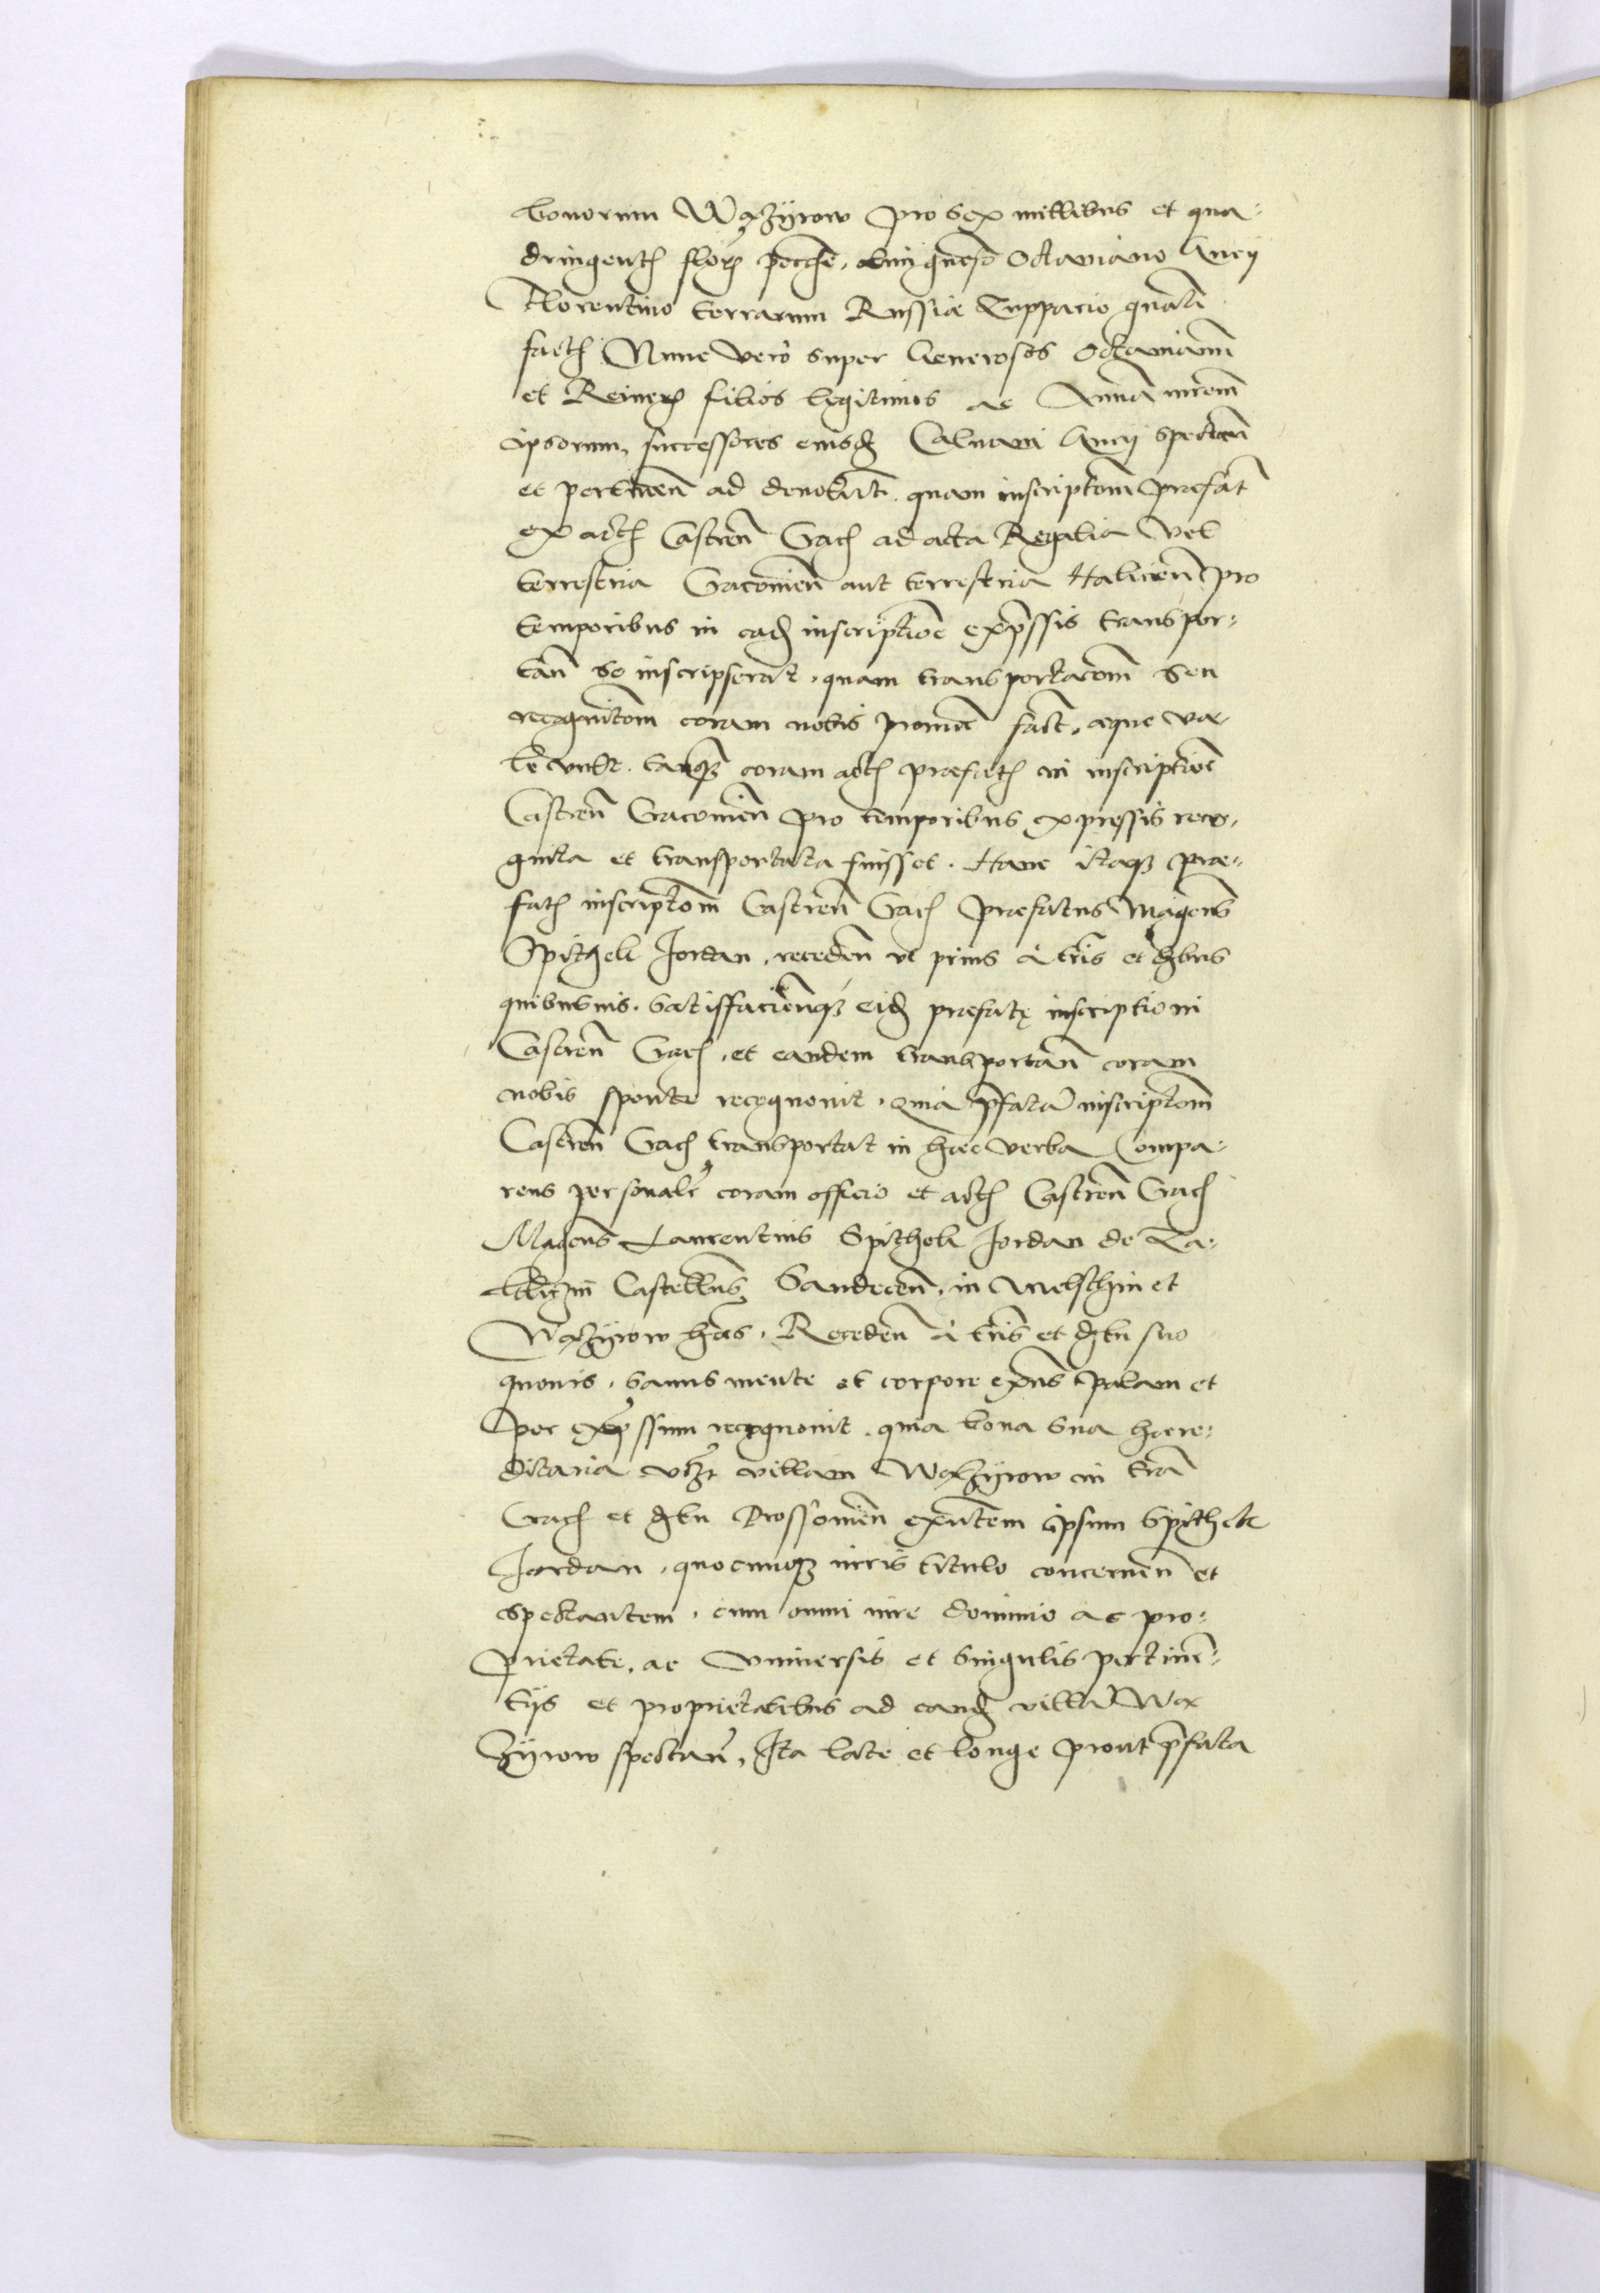 bonorum Woxzÿrow pro sex millibus et qua-
dringentis floren pecuniae, olim generoso Octaviano Gucÿ
Florentino terrarum Russiae Zuppario quondam
factis Nunc vero super Generosos Octavianum
et Reinerum filios legitimos ac Annam uxorem
ipsorum, successores eiusdem Calvani Gucÿ spectan
et pertinen ad devolut. quam inscriptionem praefat
ex actis Castren Crac ad acta Regalia vel
terrestria Cracovien aut terrestria Halicien pro
temporibus in eadem inscriptione expressis transpor-
tan se inscripserat, quam transportationem seu
recognitionem coram nobis promisit fact, aeque va-
lituram tanquam coram actis praefatis in inscriptione
Castren Cracovien pro temporibus expressis reco-
gnita et transportata fuisset. Hanc itaque prae-
fatam inscriptionem Castren Crac praefatus Magcus
Spitgell Jordan, receden ut prius à terris et districtibus
quibusvis. Satisfaciendoque eidem praefatę inscriptioni
Castren Crac, et eandem transportan coram
nobis sponte recognovit, quia praefatam inscriptionem
Castren Crac transportat in haec verba Compa-
rens personaliter coram officio et actis Castren Crac
Magcus Laurentius Spithek Jordan de Za-
kliczin Castellanus Sandecen, in Melschin et
Woxzÿrow haeres, Receden à terris et districtu suo
quovis, sanus mente et corpore existens palam et
per expressum recognovit, quia bona sua haere-
ditaria videlicet villam Woxzÿrow in terra
Crac et districtu Prossovien existentem ipsum Spithek
Jordan, quocunque iuris titulo concernen et
spectantem, cum omni iure dominio ac pro-
prietate, ac universis et singulis pertinen-
tÿs et proprietatibus ad eandem villam Wox
zÿrow spectan, Ita late et longe prout praefata